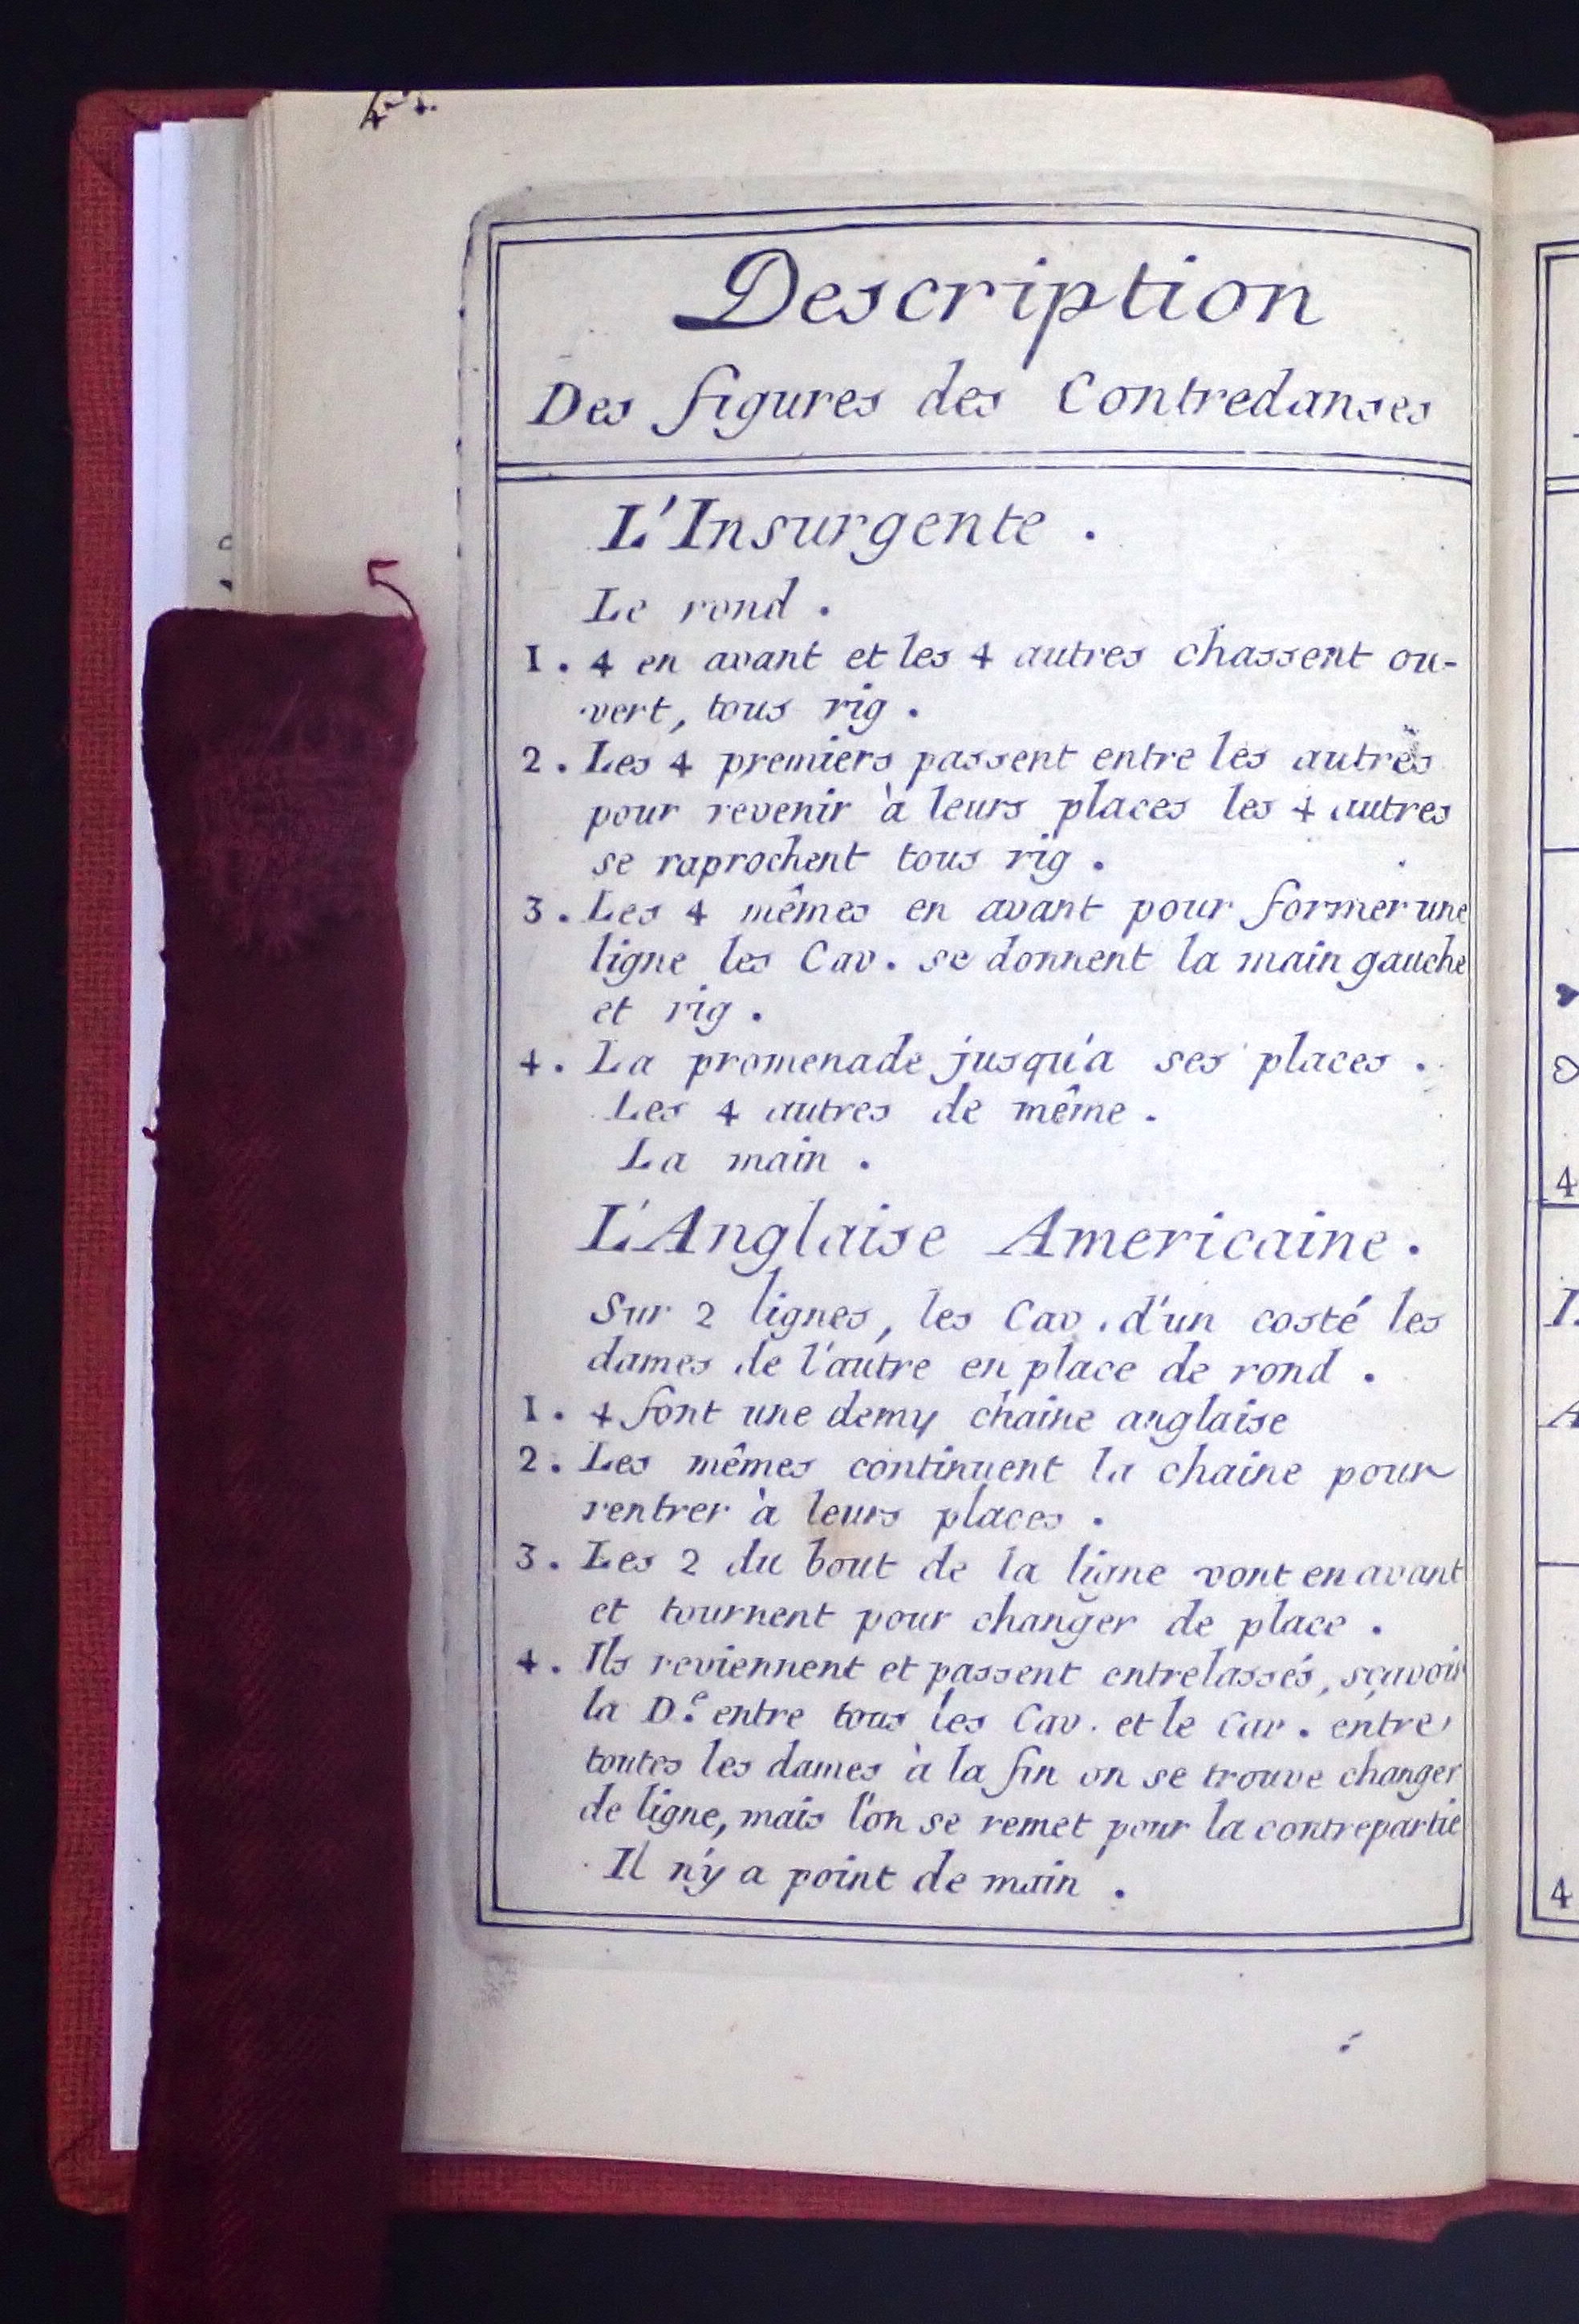 Description
Des figures des Contredanses
L'Insurgente .
Le rond .
1 . 4 en avant et les 4 autres chassent ou-
vert, tous rig .
2 . Les 4 premiers passent entre les autres
pour revenir à leurs places les 4 autres
se raprochent tous rig .
3 . Les 4 mêmes en avant pour former une
ligne les Cav . se donnent la main gauche
et rig .
4 . La promenade jusqu'a ses places .
Les 4 autres de même .
La main .
L'Anglaise Americaine .
Sur 2 lignes, les Cav . d'un costé les
dames de l'autre en place de rond .
1 . 4 font une demy chaine anglaise
2 . Les mêmes continuent la chaine pour
rentrer à leurs places .
3 . Les 2 du bout de la ligne vont en avant
et tournent pour changer de place .
4 . Ils reviennent et passent entrelassés, sçavoir
la D.e entre tous les Cav . et le Cav . entre
toutes les dames à la fin on se trouve changer
de ligne, mais l'on se remet pour la contrepartie
Il n'y a point de main .
4
4